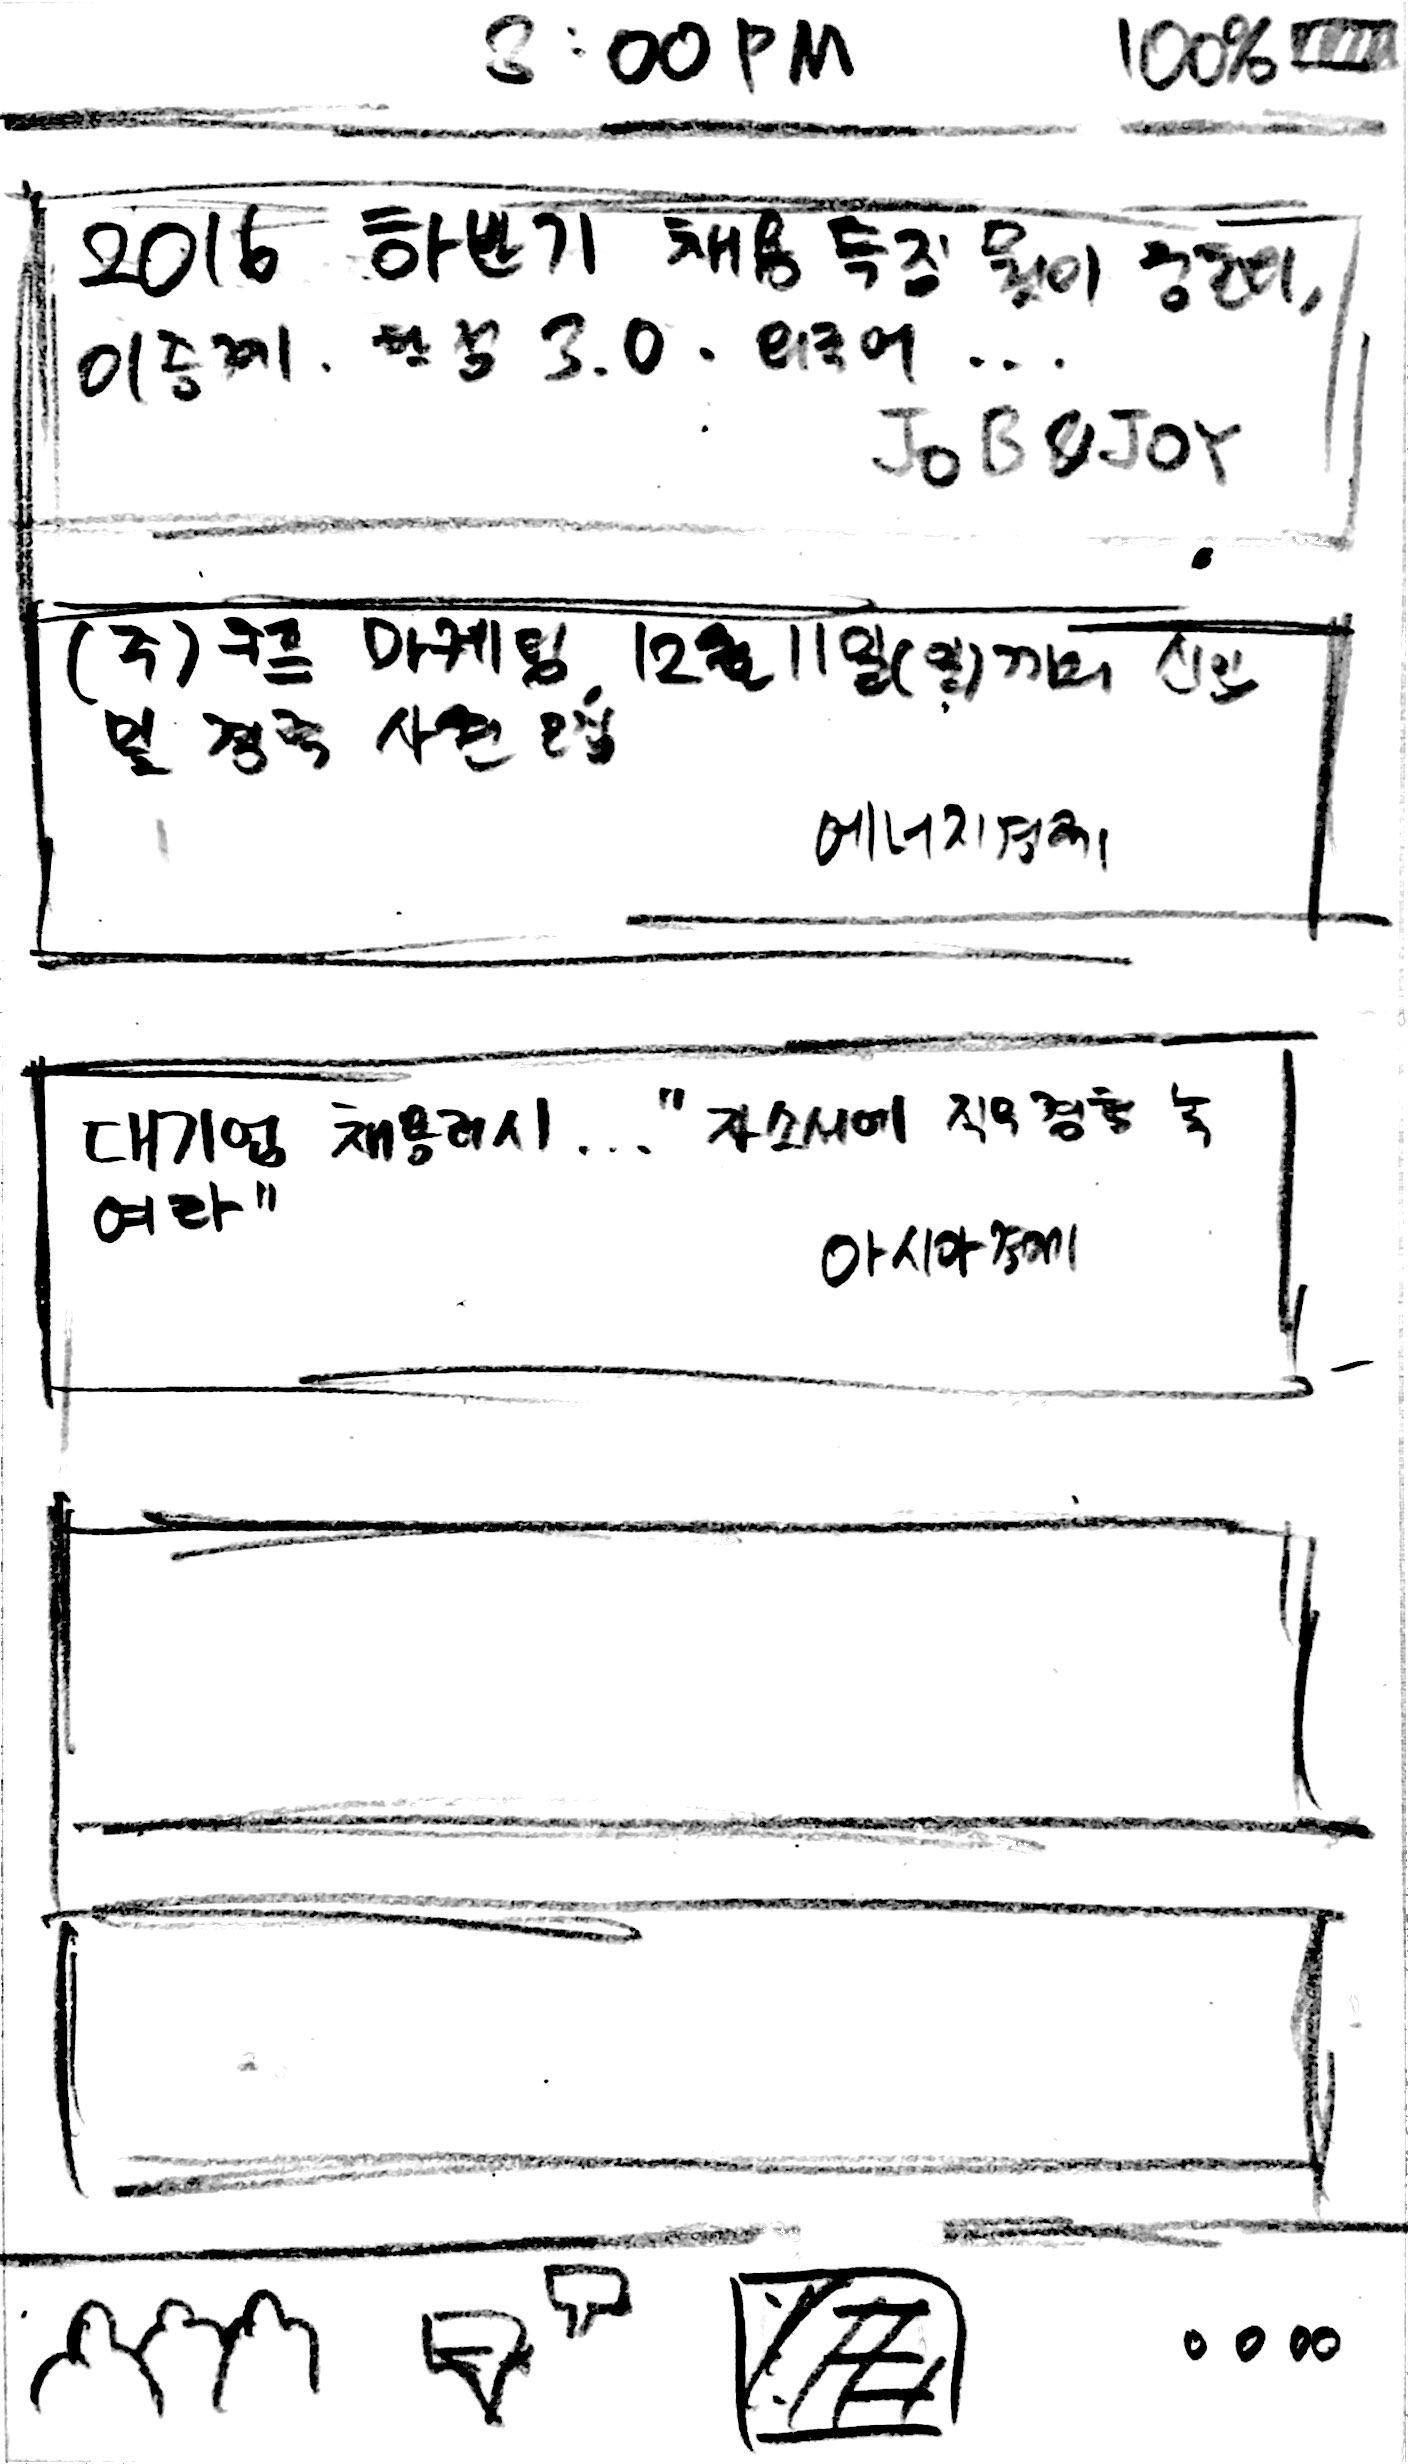 3:00PM 100%
2016 하반기 채용 특징
이중제. 3.0. 외국어 ...
JOB&JOY
(주) 쿠프 마케팅, 12월 11일(월)까지 신입
및 경력 사원 모집
에너지경제
대기업 채용러시... "자소서에 직무경험 녹
여라"
아시아경제